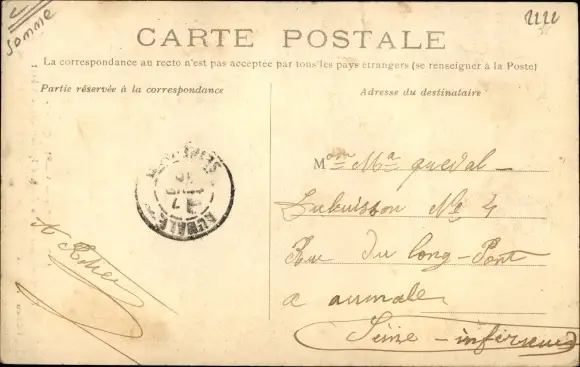 Somme
2222
CARTE POSTALE
La correspondance au recto n'est pas acceptée par tous les pays étrangers (se renseigner à la Poste)
Partie réservée à la correspondance
Adresse du destinataire
AUMALE
Ma queval
Lubuisson No 4
Rue du long-Pont
a aumale
Seine-inférieure